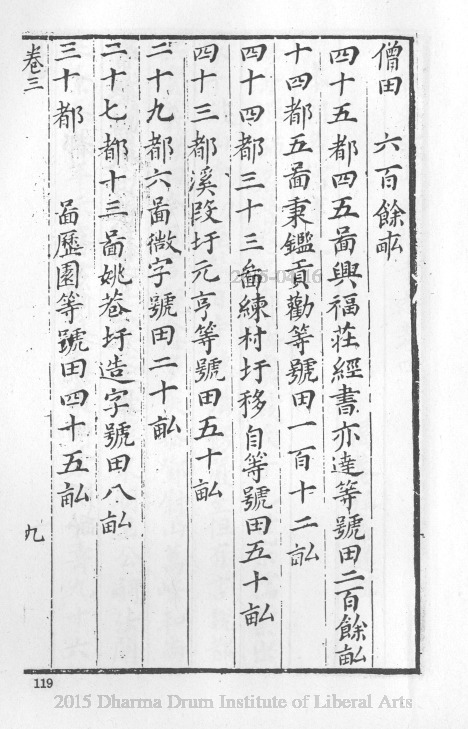 僧田　六百餘畝
四十五都四五啚興福荘經書亦達等號田二百餘畝
十四都五啚秉鑑貢勸等號田一百十二畝
四十四都三十三啚練村圩移自等號田五十畝
四十三都溪段圩元亨等號田五十畝
二十九都六啚微字號田二十畝
二十七都十三啚姚巷圩造字號田八畝
三十都　　啚歷園等號田四十五畝
卷三
九
119
2015 Dharma Drum Institute of Liberal Arts